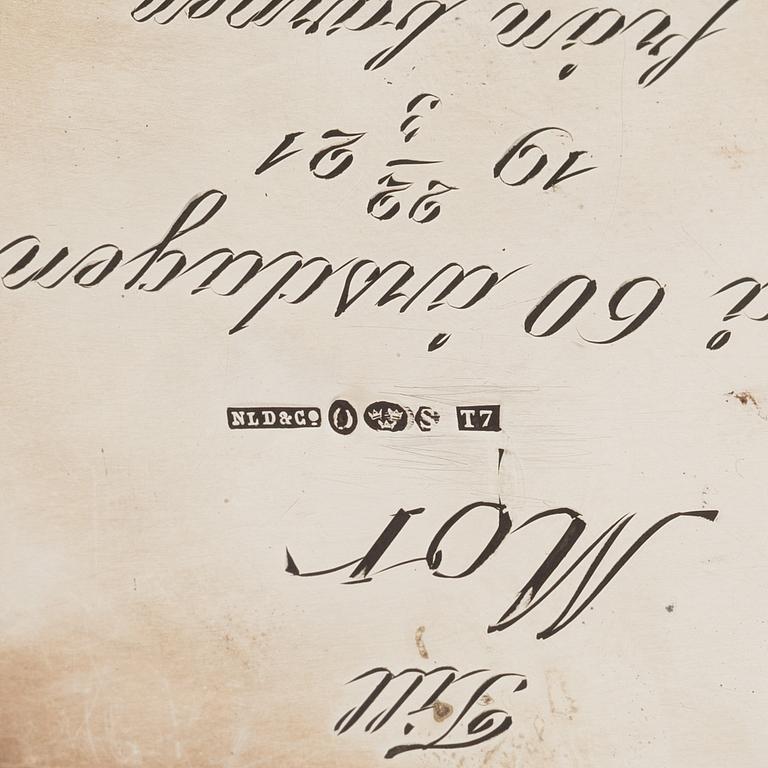 Till
Mor
NLD&Co S T7
å 60 årsdagen
19 22/3 21
från barnen